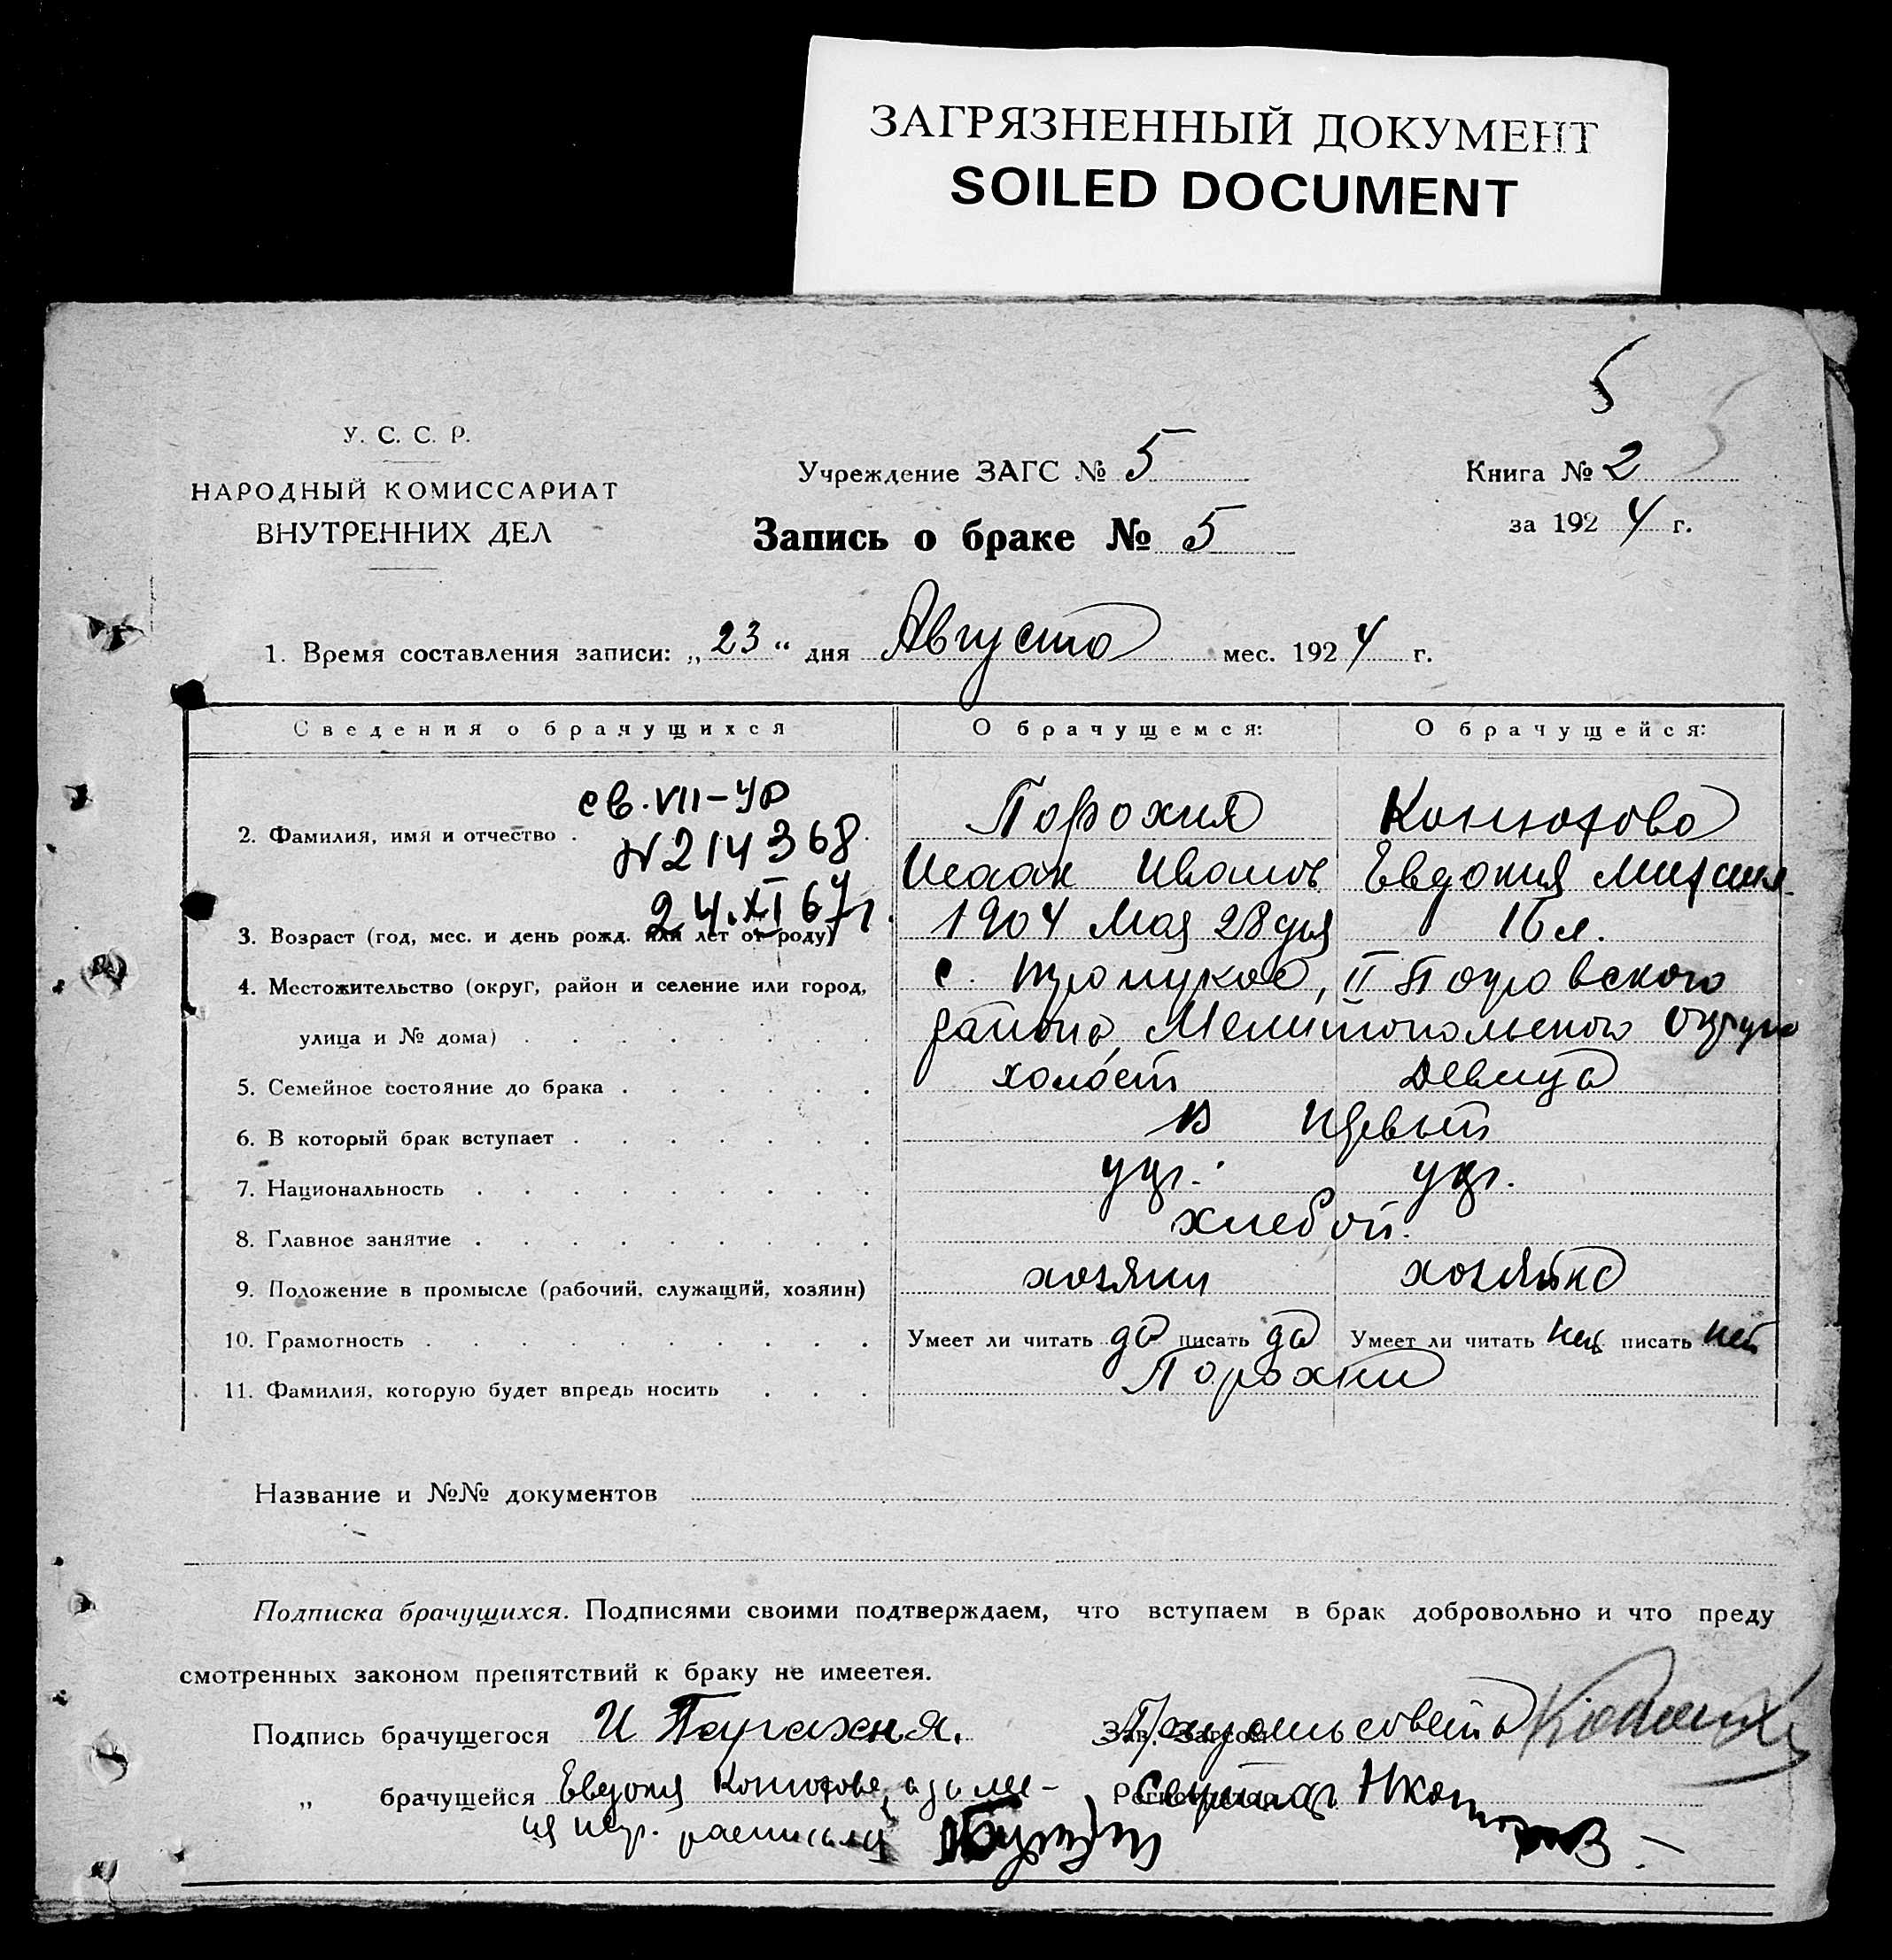 ЗАГРЯЗНЕННЫЙ ДОКУМЕНТ
SOILED DOCUMENT
5
5
У. С. С. Р.
НАРОДНЫЙ КОМИССАРИАТ
ВНУТРЕННИХ ДЕЛ
Учреждение ЗАГС № 5
Запись о браке № 5
Книга № 2
за 1924 г.
1. Время составления записи: „23“ дня Августа мес. 1924 г.
Сведения о брачущихся О брачущемся: О брачущейся:
св. VII-УР
№214368
24.XI 67г.
2. Фамилия, имя и отчество . Порохня Конюхова
Исаак Иванов Евдокия
3. Возраст (год, мес. и день рожд. или лет от роду) 1904 Мая 28 дня 16 л.
4. Местожительство (округ, район и селение или город, с. II
улица и № дома) района, Мелитопольского округа
5. Семейное состояние до брака холост девица
6. В который брак вступает в первый
7. Национальность укр. укр.
8. Главное занятие хлебоп.
9. Положение в промысле (рабочий, служащий, хозяин) хозяин хозяйка
10. Грамотность Умеет ли читать да писать да Умеет ли читать нет писать нет
11. Фамилия, которую будет впредь носить Порохни
Название и №№ документов
Подписка брачущихся. Подписями своими подтверждаем, что вступаем в брак добровольно и что преду
смотренных законом препятствий к браку не имеетея.
Подпись брачущегося И Парахня. Зав. Загсом
„ брачущейся Евдокия Конюхова, а за не- Регистратор
я негр. расписался